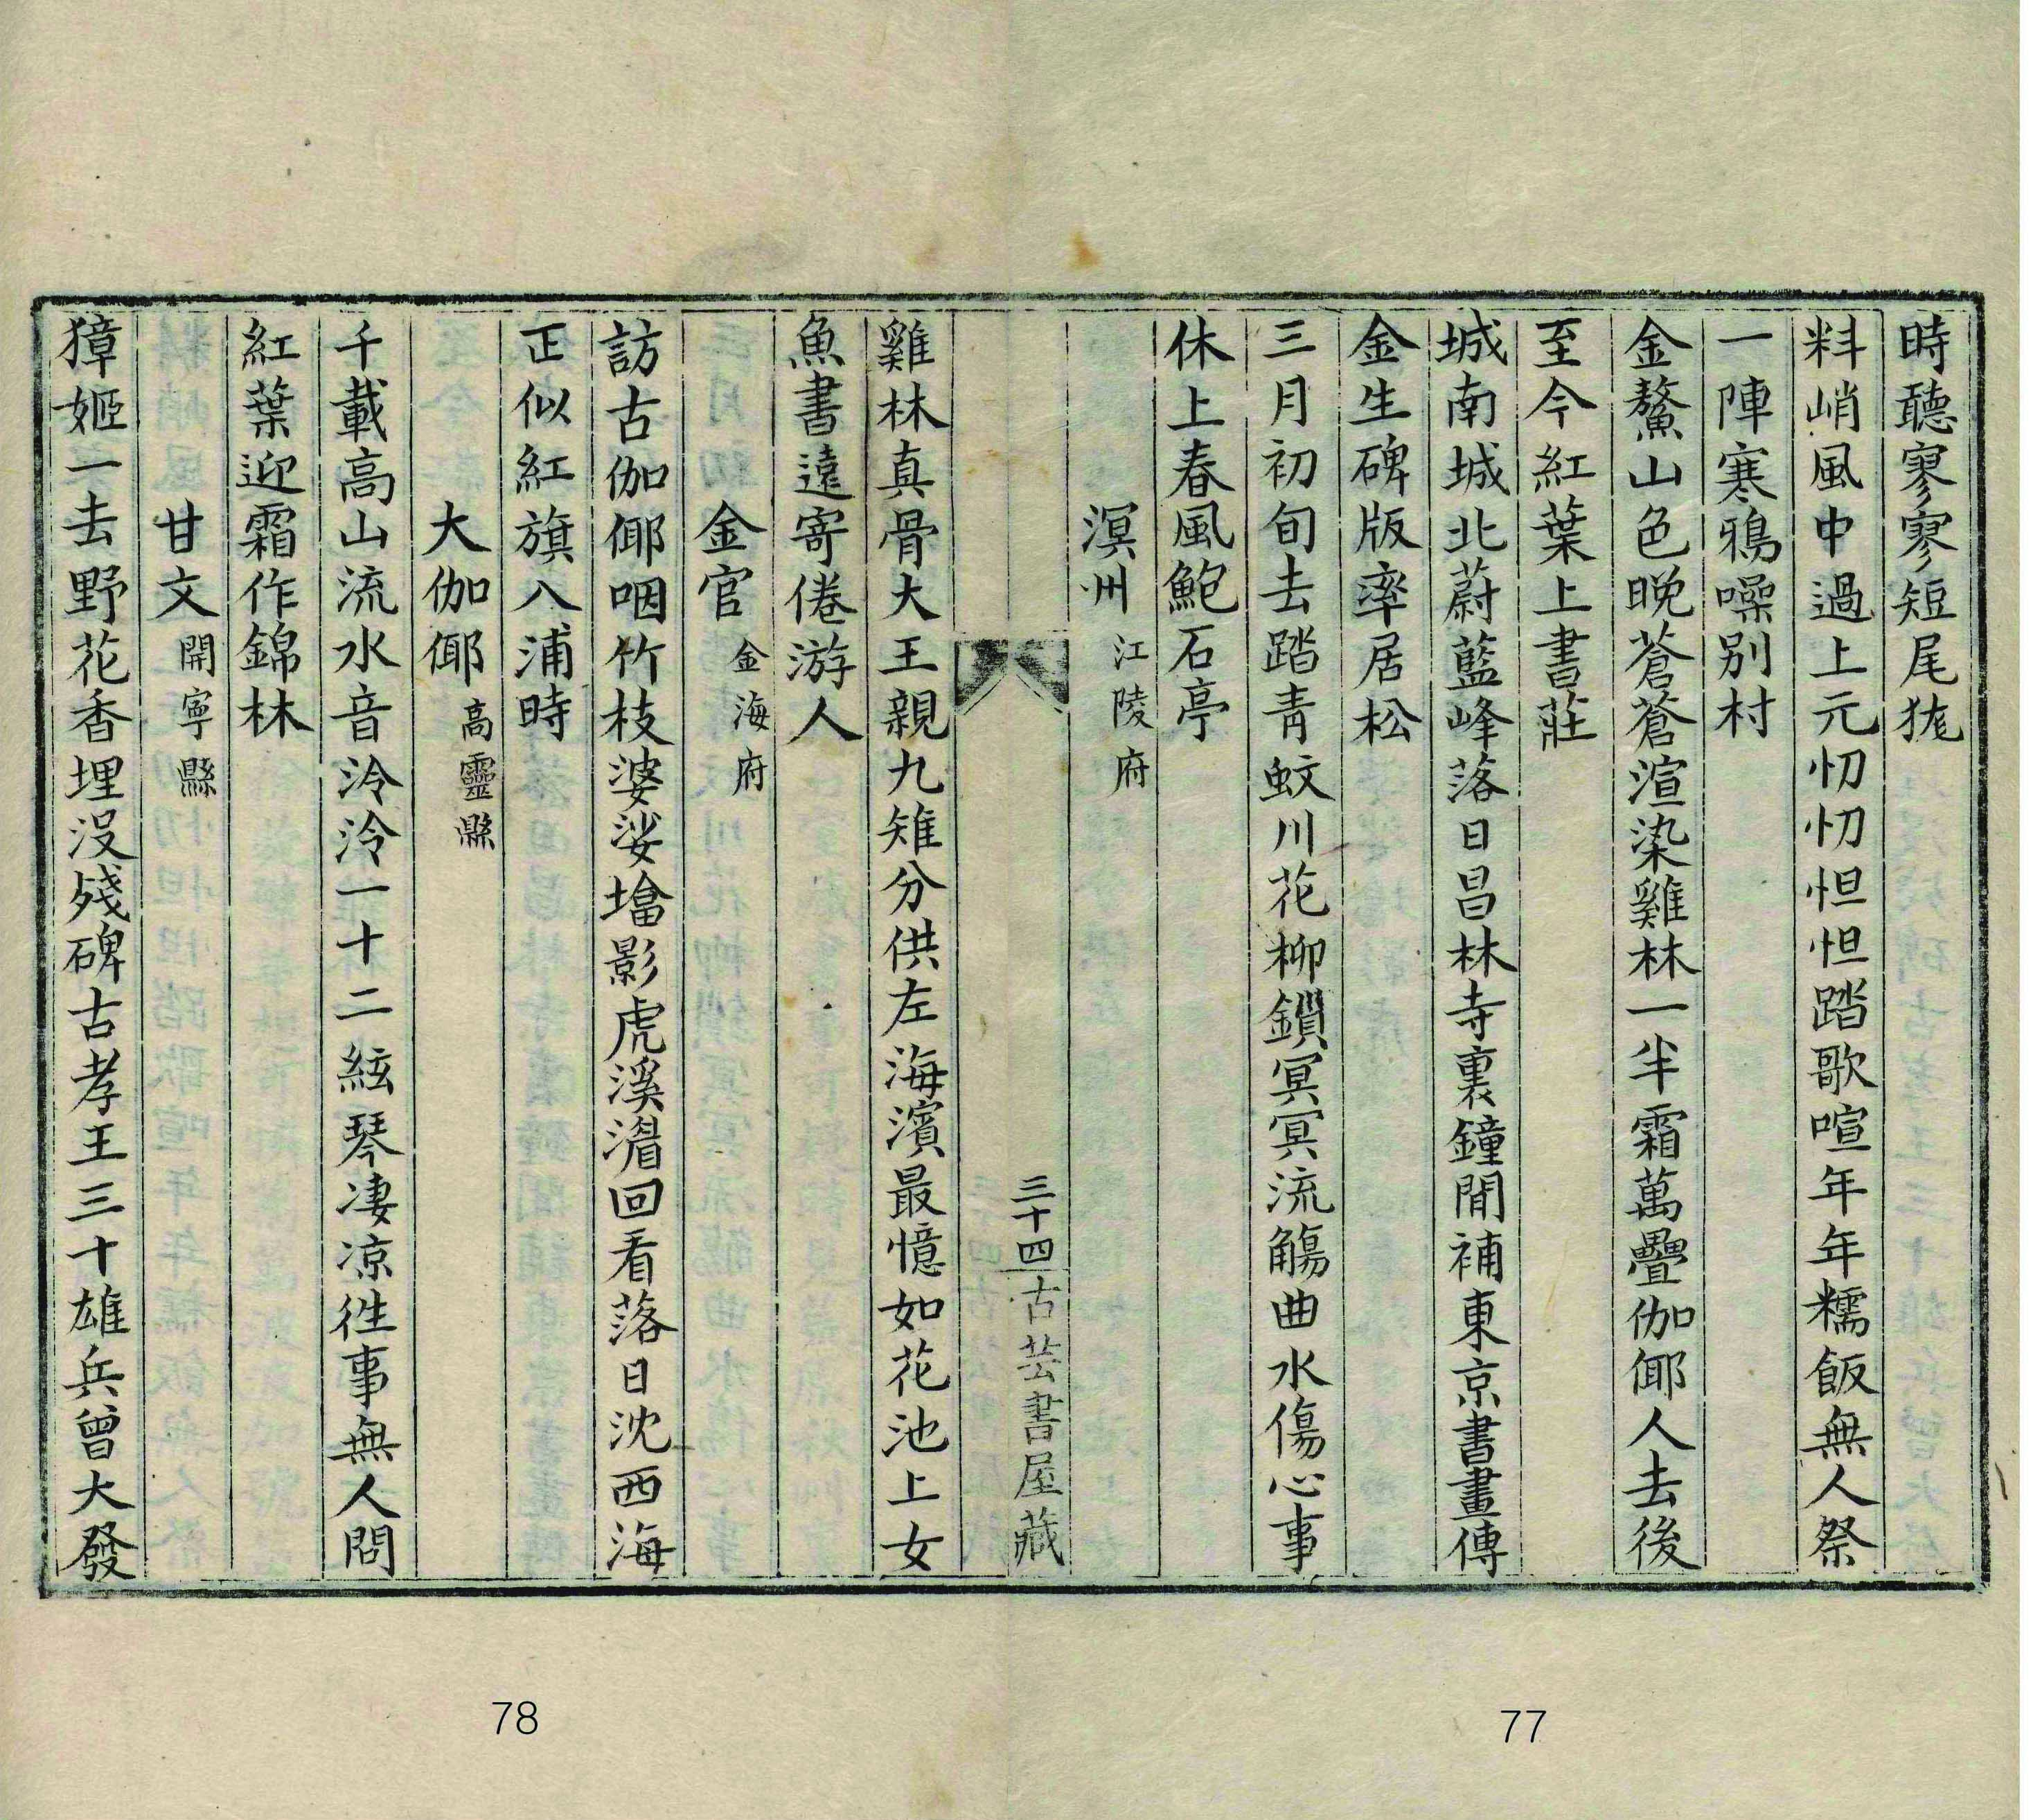 時聽寥寥短尾狵
料峭風中過上元忉忉怛怛踏歌喧年年糯飯無人祭
一陣寒鴉噪别村
金鰲山色晚蒼蒼渲染雞林一半霜萬疊伽倻人去後
至今紅葉上書莊
城南城北蔚藍峰落日昌林寺裏鐘閒補東京書畫傳
金生碑版率居松
三月初旬去踏青蚊川花柳鎖冥冥流觴曲水傷心事
休上春風鮑石亭
溟州 江陵府
三十四 古芸書屋藏
雞林真骨大王親九雉分供左海濱最憶如花池上女
魚書遠寄倦游人
金官 金海府
訪古伽倻咽竹枝婆娑㙮影虎溪湄回看落日沈西海
正似紅旗八浦時
大伽倻 高靈縣
千載高山流水音泠泠一十二絃琴凄凉徃事無人問
紅葉迎霜作錦林
甘文 開寧縣
獐姬一去野花香埋没殘碑古孝王三十雄兵曾大發
78
77